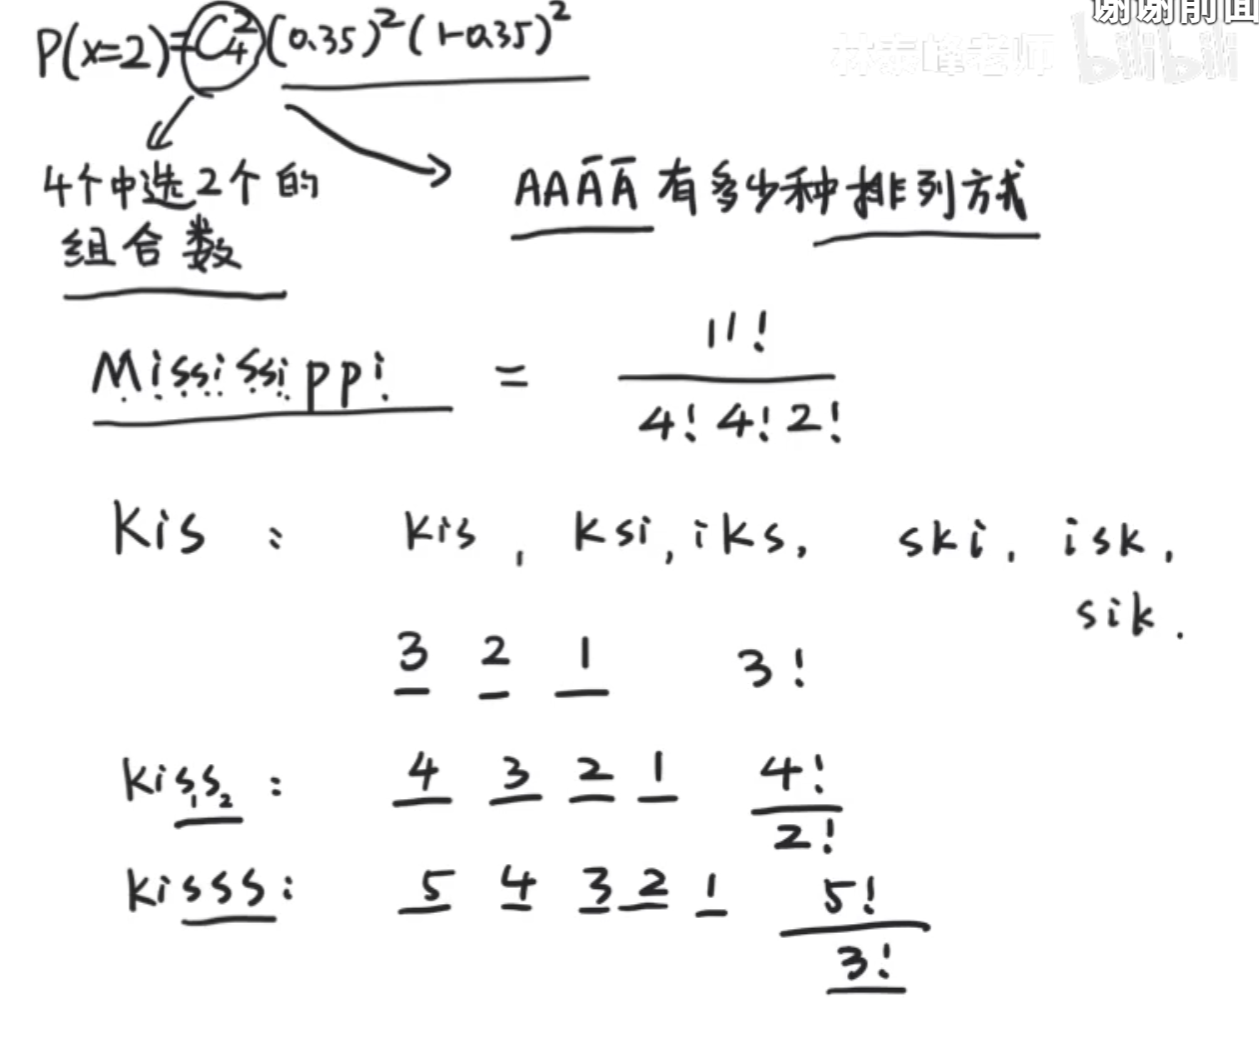 谢谢前面
林泰峰老师 bilibili
P(x=2)=C₄²(0.35)²(1-0.35)²
4个中选2个的
组合数
AAĀĀ有多少种排列方式
Mississippi = 11! / 4! 4! 2!
Kis : kis, ksi, iks, ski, isk,
sik.
3 2 1 3!
kis₁s₂ : 4 3 2 1 4! / 2!
kisss : 5 4 3 2 1 5! / 3!